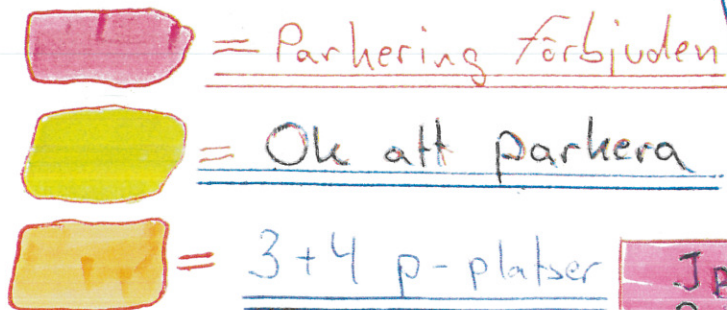 = Parkering förbjuden
= Ok att parkera
= 3+4 p-platser